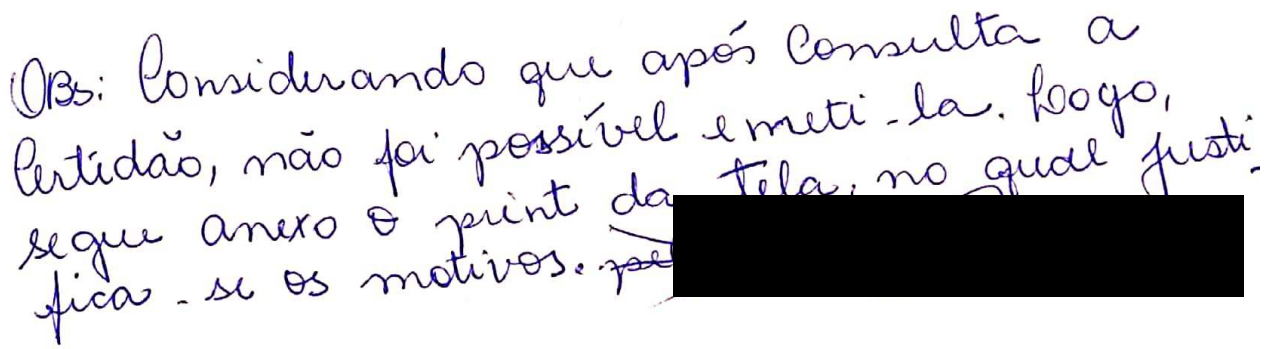 OBs: Considerando que após Consulta a
Certidão, não foi possível emeti-la. Logo,
segue anexo o print da tela, no qual justi-
fica-se os motivos.